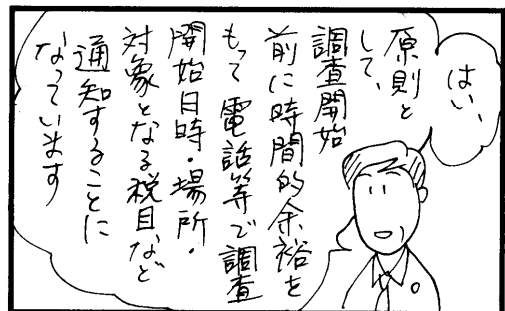 はい、
原則と
して、
調査開始
前に時間的余裕を
もって電話等で調査
開始日時・場所・
対象となる税目、など
通知することに
なっています